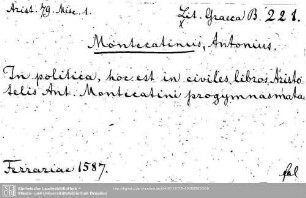 Arist. 79. Misc. 1.
Lit. Graeca B. 221.
Montecatinus, Antonius.
In politica, hoc est in civiles libros Aristo-
telis Ant. Montecatini progymnasmata
Ferrariae 1587.
Sächsische Landesbibliothek -
Staats- und Universitätsbibliothek Dresden